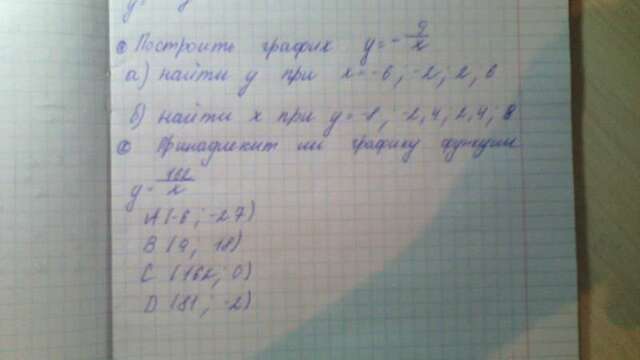 Построить график y = - 9/x
а) найти y при x = -6; -2; 2, 6
б) найти x при y = -8; -2,4; 2,4; 8
Принадлежит ли графику функции
y = 162/x
A (-6; -27)
B (9; 18)
C (162; 0)
D (81; -2)